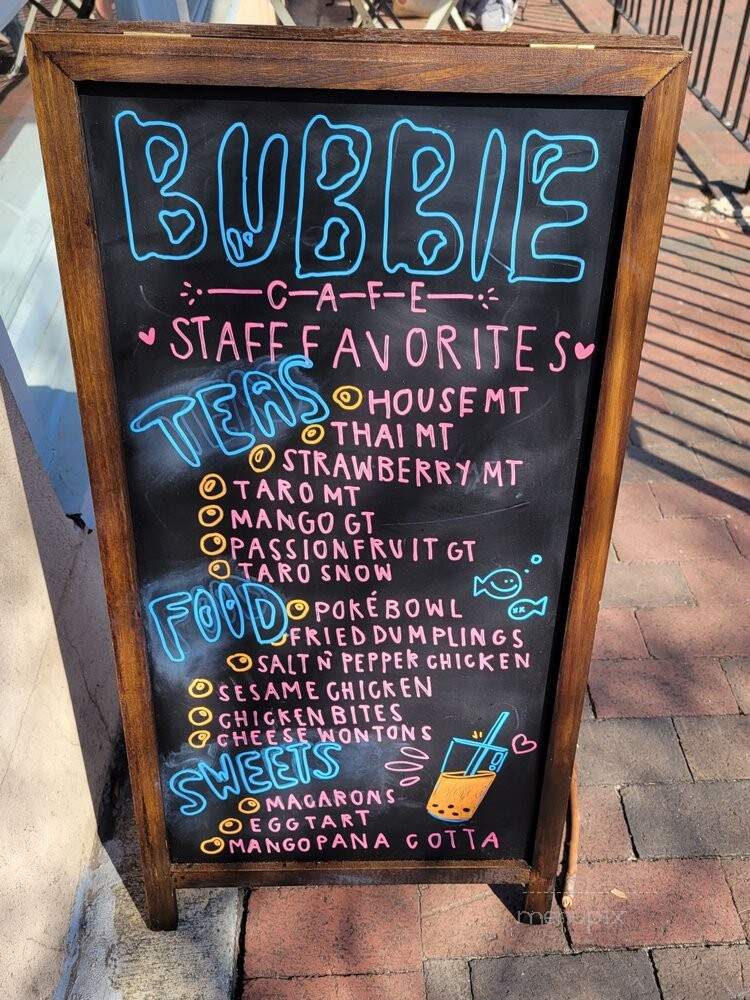 BUBBIE
CAFE
STAFF FAVORITES
TEAS
HOUSE MT
THAI MT
STRAWBERRY MT
TARO MT
MANGO GT
PASSIONFRUIT GT
TARO SNOW
FOOD
POKÉ BOWL
FRIED DUMPLINGS
SALT N̈ PEPPER CHICKEN
SESAME CHICKEN
CHICKEN BITES
CHEESE WONTONS
SWEETS
MACARONS
EGG TART
MANGO PANA COTTA
menupix